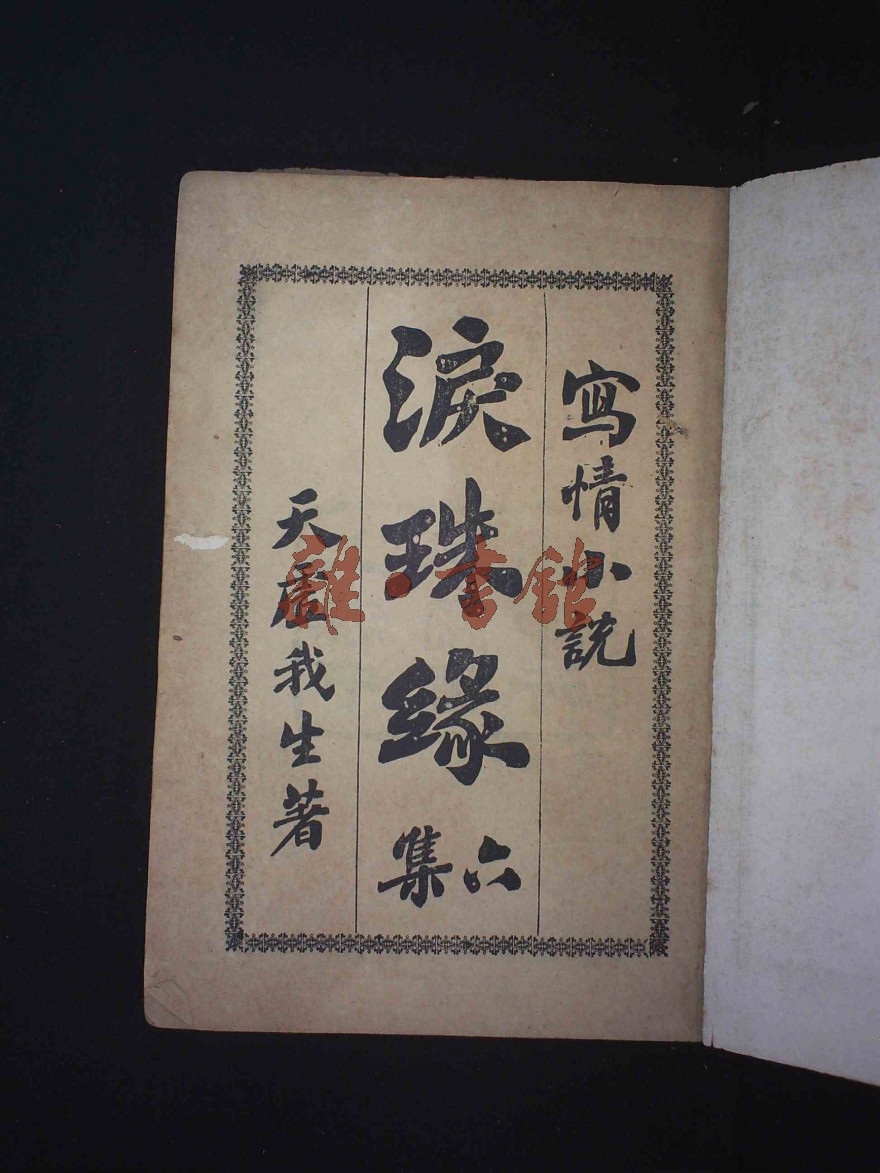 寫情小說
淚珠緣
六集
天虛我生著
雜·書館